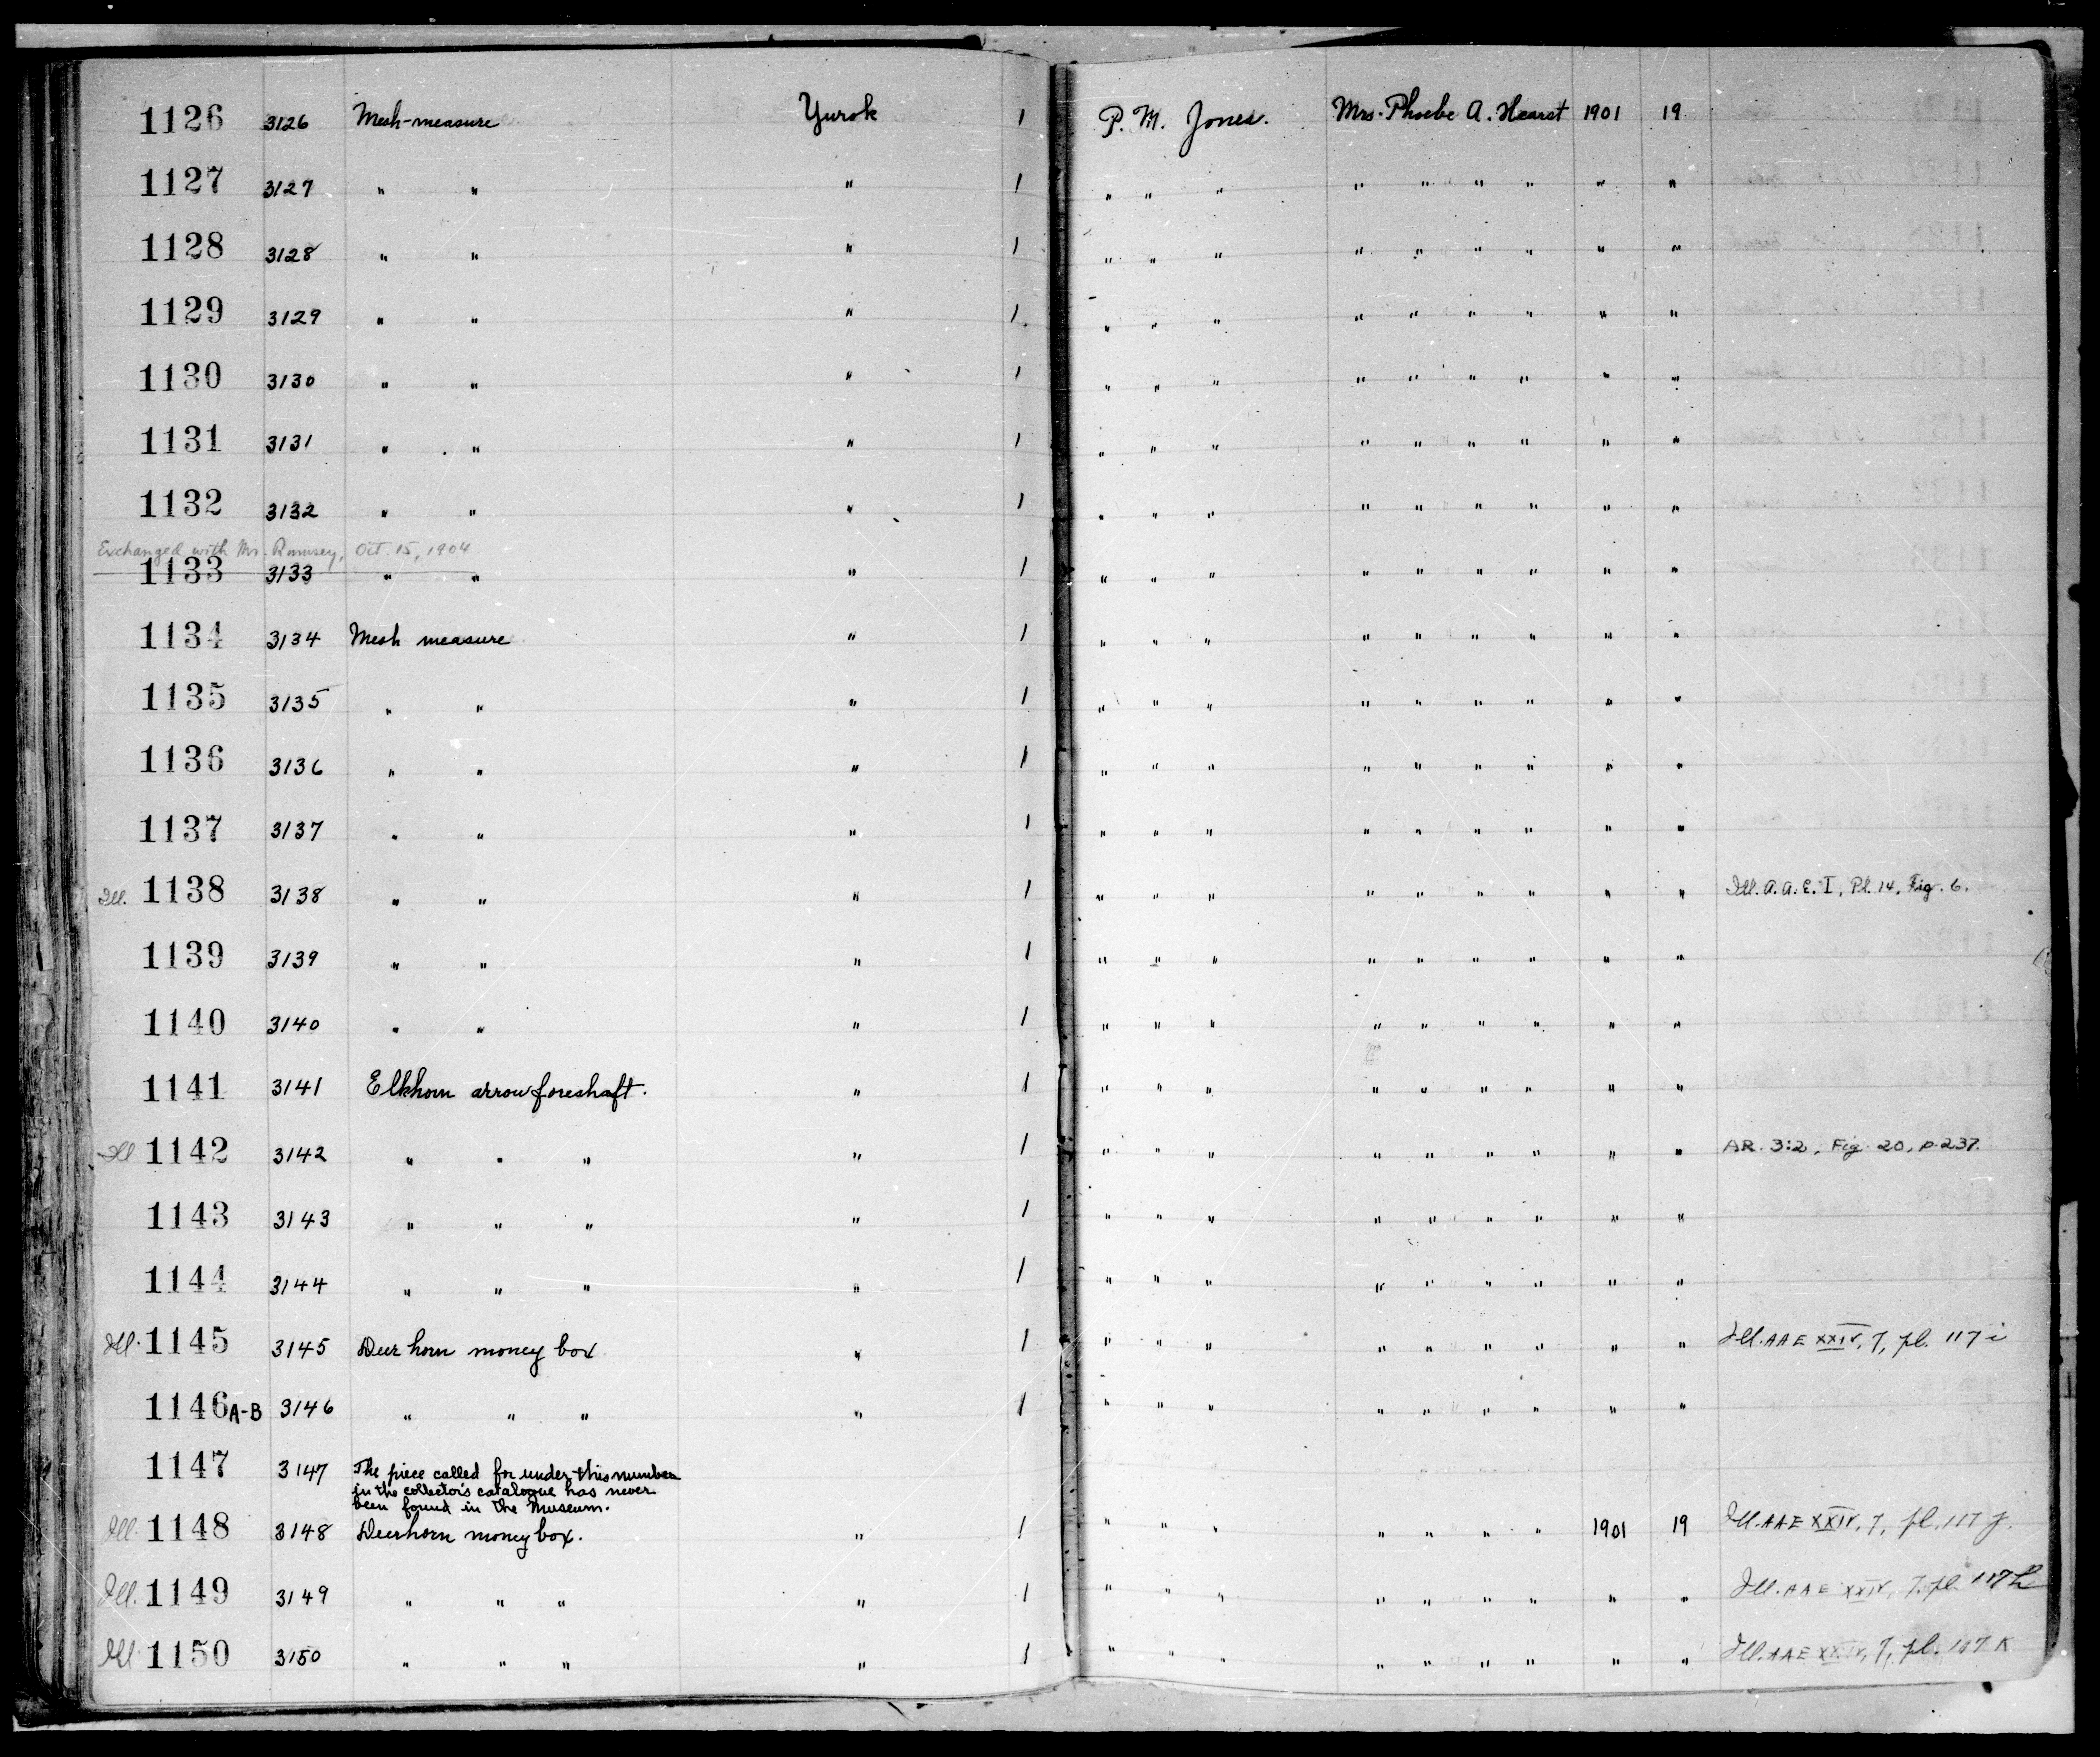 1126 3126 Mesh-measure Yurok 1 P. M. Jones. Mrs. Phoebe A. Hearst 1901 19
1127 3127 " " " 1 " " " " " " " " "
1128 3128 " " " 1 " " " " " " " " "
1129 3129 " " " 1. " " " " " " " " "
1130 3130 " " " 1 " " " " " " " " "
1131 3131 " " " 1 " " " " " " " " "
1132 3132 " " " 1 " " " " " " " " "
Exchanged with Mr. Rumsey, Oct. 15, 1904
1133 3133 " " " 1 " " " " " " " " "
1134 3134 Mesh measure " 1 " " " " " " " " "
1135 3135 " " " 1 " " " " " " " " "
1136 3136 " " " 1 " " " " " " " " "
1137 3137 " " " 1 " " " " " " " " "
Ill. 1138 3138 " " " 1 " " " " " " " " " Ill. A.A.E. I, Pl. 14, Fig. 6.
1139 3139 " " " 1 " " " " " " " " "
1140 3140 " " " 1 " " " " " " " " "
1141 3141 Elkhorn arrow foreshaft. " 1 " " " " " " " " "
Ill 1142 3142 " " " " 1 " " " " " " " " " AR. 3:2, Fig. 20, p. 237.
1143 3143 " " " " 1 " " " " " " " " "
1144 3144 " " " " 1 " " " " " " " " "
Ill. 1145 3145 Deer horn money box " 1 " " " " " " " " " Ill. AAE XXIV, 7, pl. 117 i
1146A-B 3146 " " " " 1 " " " " " " " " "
1147 3147 The piece called for under this number
in the collector's catalogue has never
been found in the Museum.
Ill. 1148 3148 Deerhorn money box. " 1 " " " " " " " 1901 19 Ill. AAE XXIV, 7, pl. 117 j.
Ill. 1149 3149 " " " " 1 " " " " " " " " " Ill. AAE XXIV, 7, pl. 117 h
Ill 1150 3150 " " " " 1 " " " " " " " " " Ill. AAE XXIV, 7, pl. 117 K